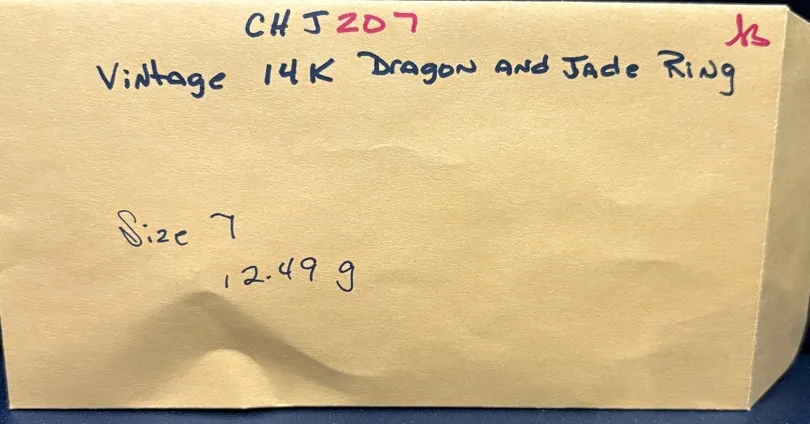 CHJ207
Vintage 14K Dragon and Jade Ring
Size 7
12.49 g